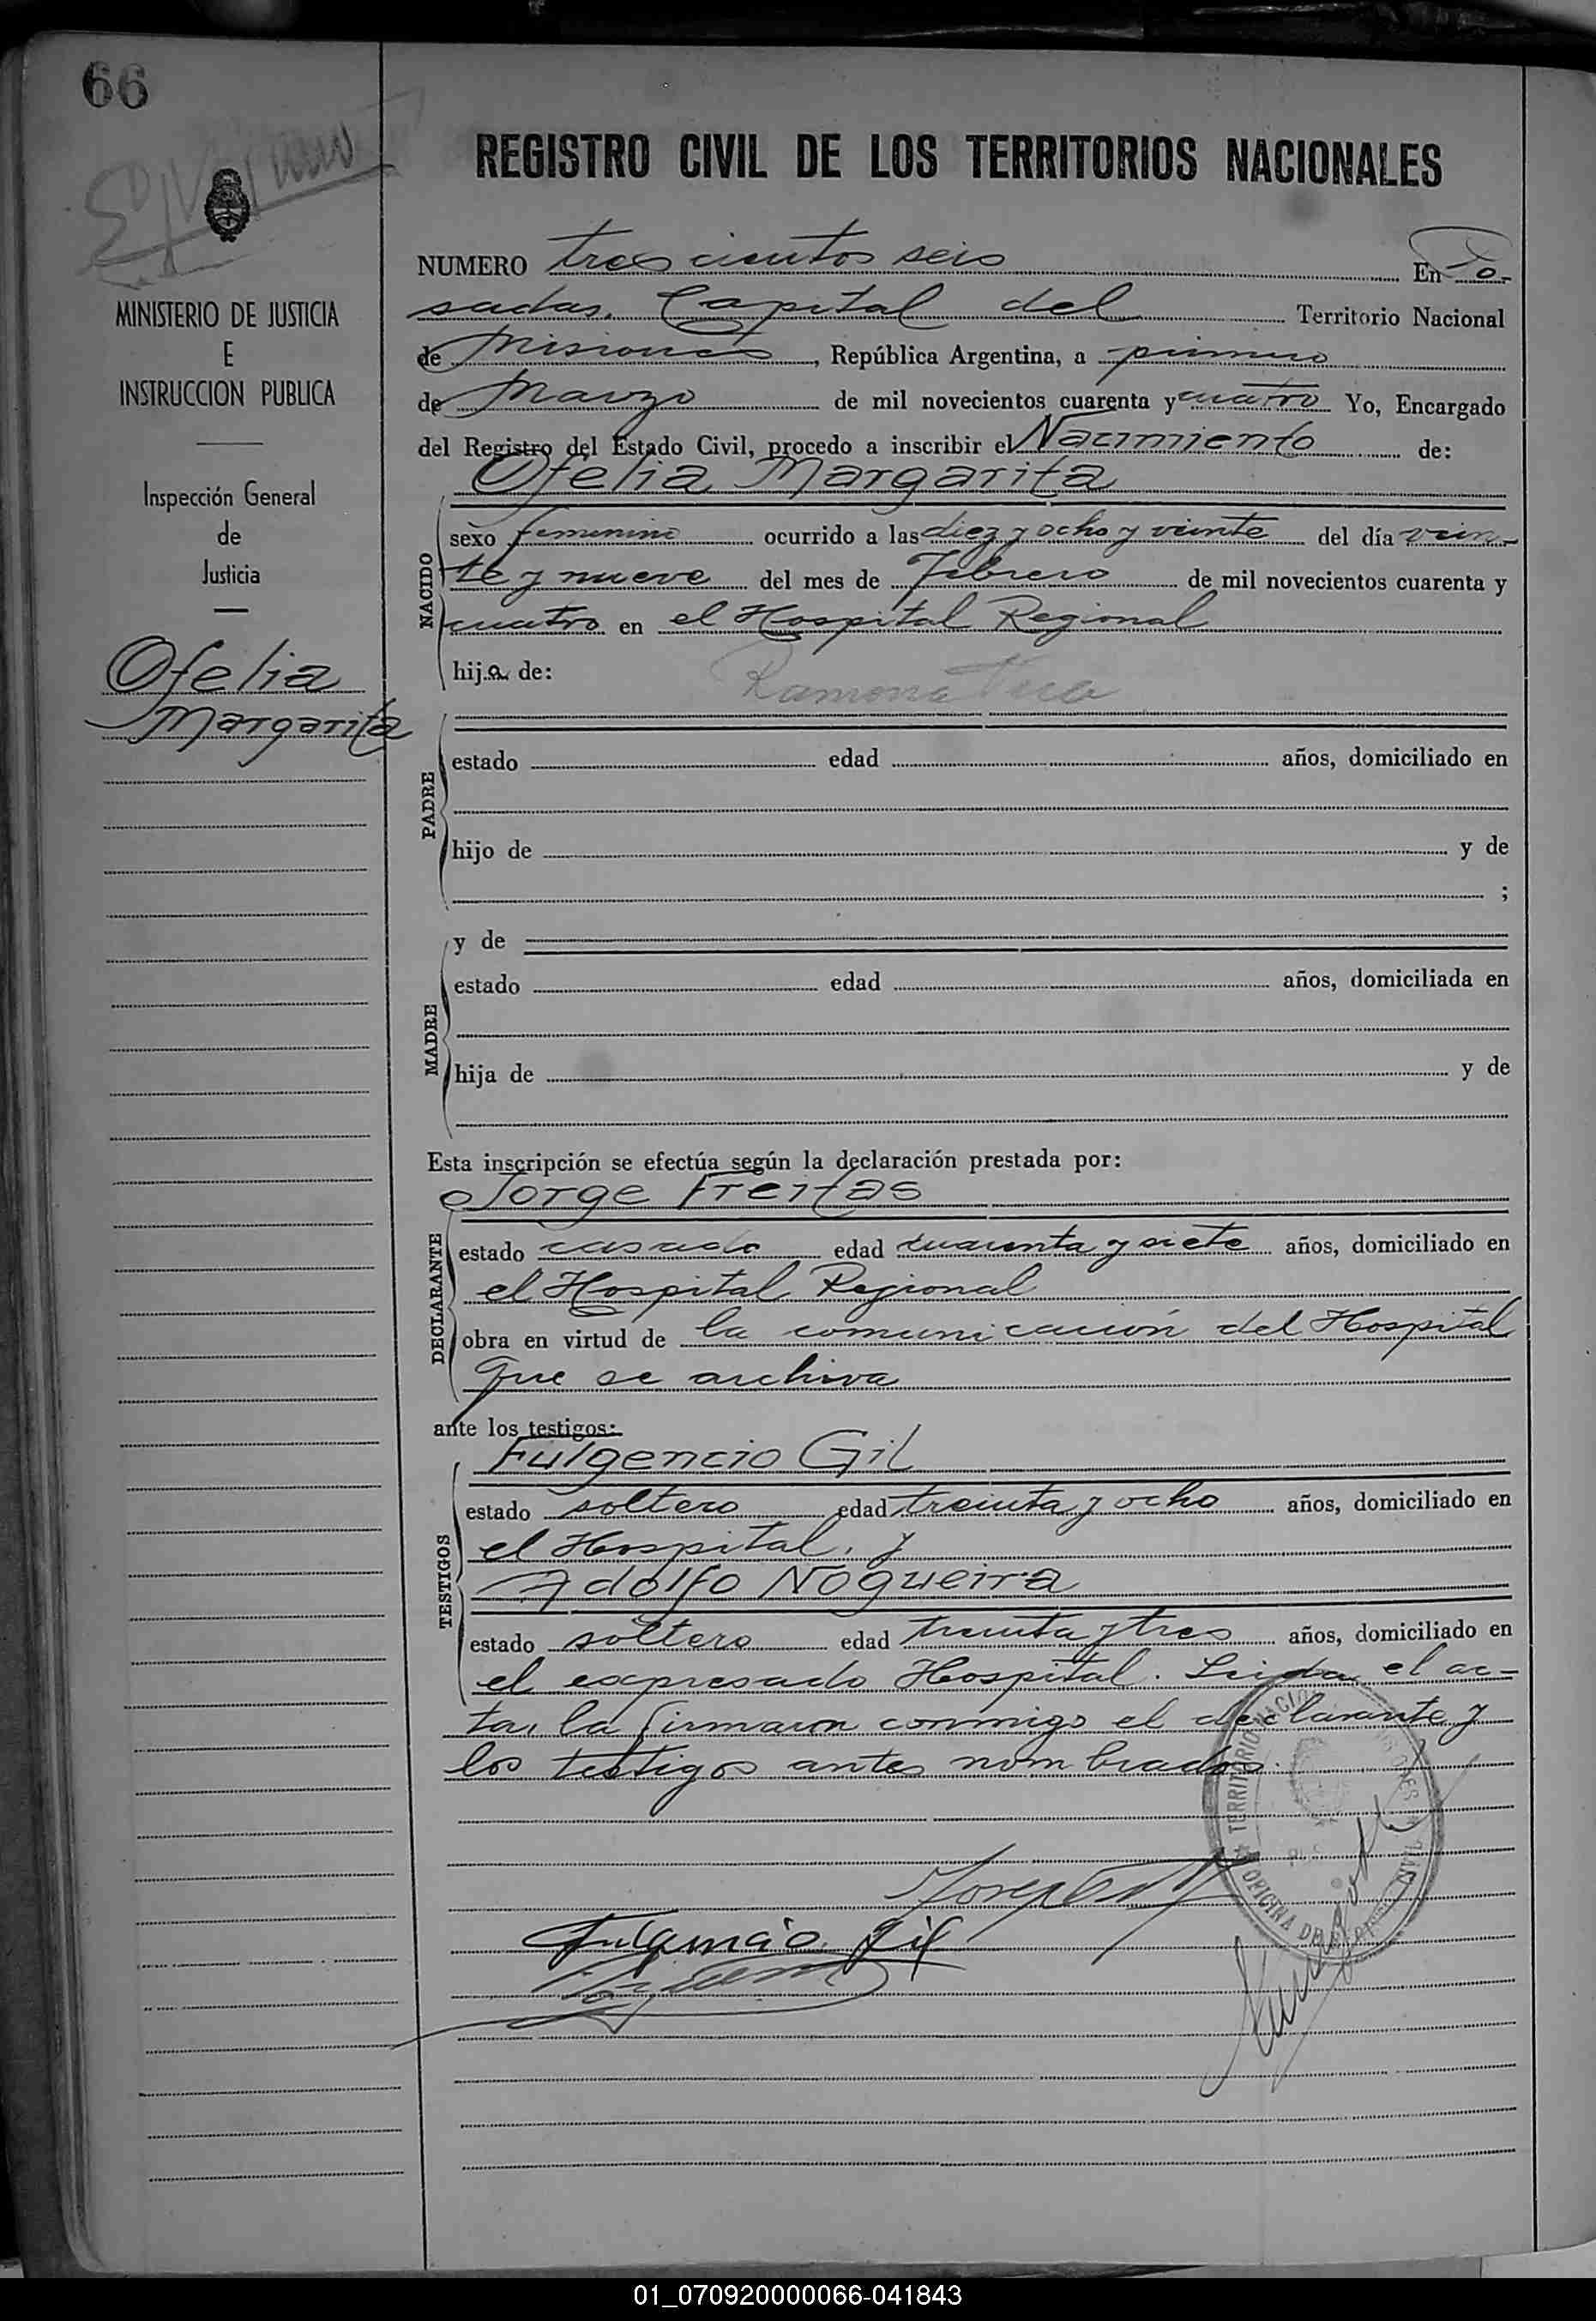 66
REGISTRO CIVIL DE LOS TERRITORIOS NACIONALES
MINISTERIO DE JUSTICIA
E
INSTRUCCION PUBLICA
Inspección General
de
Justicia
Ofelia
Margarita
NUMERO tres cientos seis En Po-
sadas, Capital del Territorio Nacional
de Misiones, República Argentina, a primero
de Marzo de mil novecientos cuarenta y cuatro Yo, Encargado
del Registro del Estado Civil, procedo a inscribir el Nacimiento de:
Ofelia Margarita
NACIDO
sexo femenino ocurrido a las diez y ocho y veinte del día vein-
te y nueve del mes de Febrero de mil novecientos cuarenta y
cuatro en el Hospital Regional
hija de:
Ramona
PADRE
estado edad años, domiciliado en
hijo de y de
;
y de
MADRE
estado edad años, domiciliada en
hija de y de
Esta inscripción se efectúa según la declaración prestada por:
Jorge Freitas
DECLARANTE
estado casado edad cuarenta y siete años, domiciliado en
el Hospital Regional
obra en virtud de la comunicación del Hospital
que se archiva
ante los testigos:
Fulgencio Gil
TESTIGOS
estado soltero edad treinta y ocho años, domiciliado en
el Hospital, y
Adolfo Nogueira
estado soltero edad treinta y tres años, domiciliado en
el expresado Hospital. Leida el ac-
ta, la firmaron conmigo el declarante y
los testigos antes nombrados.
TERRITORIO
OFICINA
CIVIL
Fulgencio Gil
01_070920000066-041843